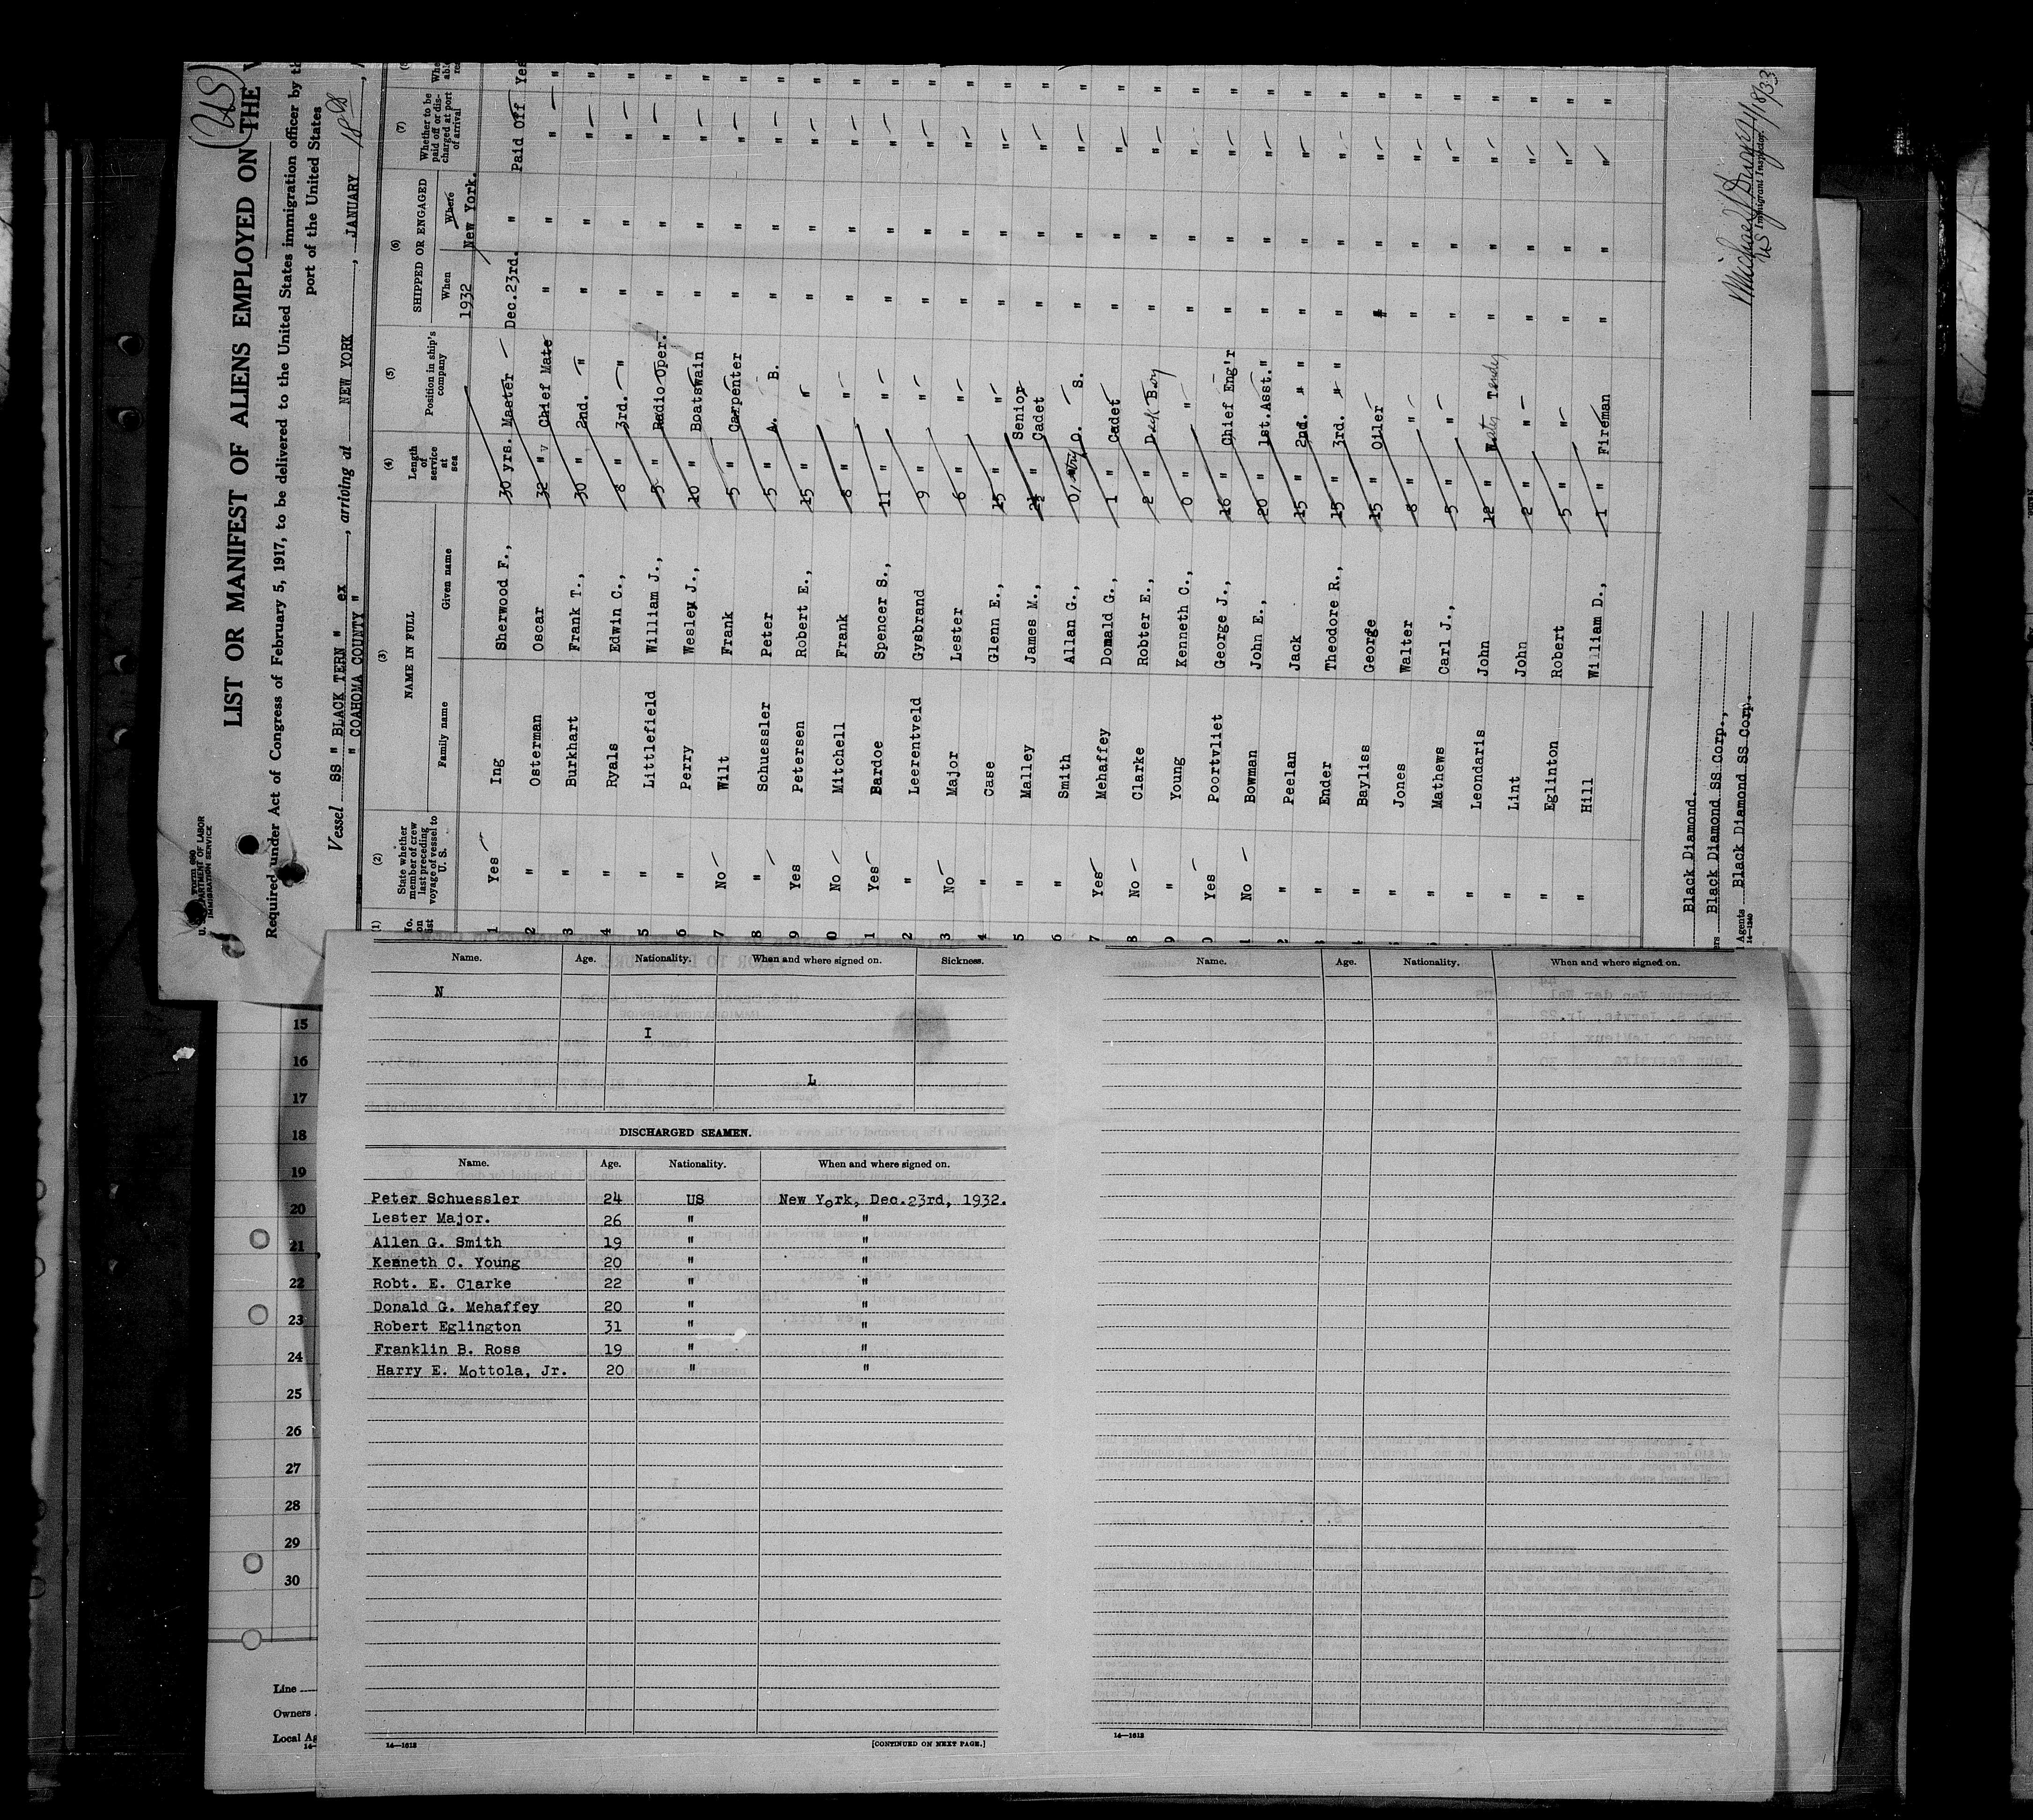 (US)
Form 680
U. S. DEPARTMENT OF LABOR
IMMIGRATION SERVICE
LIST OR MANIFEST OF ALIENS EMPLOYED ON THE
Required under Act of Congress of February 5, 1917, to be delivered to the United States immigration officer by th
port of the United States
Vessel SS " BLACK TERN " ex , arriving at NEW YORK , JANUARY 18th ,
" COAHOMA COUNTY "
(1) (2) (3) (4) (5) (6) (7)
No. on list State whether member of crew last preceding voyage of vessel to U. S. NAME IN FULL Length of service at sea Position in ship's company SHIPPED OR ENGAGED Whether to be paid off or discharged at port of arrival
Family name Given name When Where
1932 New York.
1 Yes Ing Sherwood F., 30 yrs. Master Dec.23rd. " Paid Off Yes
2 " Osterman Oscar 32 " Chief Mate " " " "
3 " Burkhart Frank T., 30 " 2nd. " " " " "
4 " Ryals Edwin C., 8 " 3rd. " " " " "
5 " Littlefield William J., 5 " Radio Oper. " " " "
6 " Perry Wesley J., 10 " Boatswain " " " "
7 No Wilt Frank 5 " Carpenter " " " "
8 " Schuessler Peter 5 " A. B. " " " "
9 Yes Petersen Robert E., 15 " " " " " "
0 No Mitchell Frank 8 " " " " " "
1 Yes Bardoe Spencer S., 11 " " " " " "
2 " Leerentveld Gysbrand 9 " " " " " "
3 No Major Lester 6 " " " " " "
4 " Case Glenn E., 15 " " " " " "
5 " Malley James M., 2½ " Senior Cadet " " " "
6 " Smith Allan G., 0, O. S. " " " "
7 Yes Mehaffey Domald G., 1 " Cadet " " " "
8 No Clarke Robter E., 2 " Deck Boy " " " "
9 " Young Kenneth C., 0 " " " " " "
0 Yes Poortvliet George J., 16 " Chief Eng'r " " " "
1 No Bowman John E., 20 " 1st.Asst." " " " "
2 " Peelan Jack 15 " 2nd. " " " " " "
3 " Ender Theodore R., 15 " 3rd. " " " " " "
" Bayliss George 15 " Oiler " " " "
" Jones Walter 8 " " " " " "
" Mathews Carl J., 5 " " " " " "
" Leondaris John 12 " Water Tender " " " "
" Lint John 2 " " " " " "
" Eglinton Robert 5 " " " " " "
" Hill William D., 1 " Fireman " " " "
Black Diamond.
ers Black Diamond SS Corp.,
l Agents Black Diamond SS Corp.
14—1240
1/18/33
US Immigrant Inspector.
Name. Age. Nationality. When and where signed on. Sickness.
N
I
L
DISCHARGED SEAMEN.
Name. Age. Nationality. When and where signed on.
Peter Schuessler 24 US New York, Dec.23rd, 1932.
Lester Major. 26 " "
Allen G. Smith 19 " "
Kenneth C. Young 20 " "
Robt. E. Clarke 22 " "
Donald G. Mehaffey 20 " "
Robert Eglington 31 " "
Franklin B. Ross 19 " "
Harry E. Mottola, Jr. 20 " "
14—1613
[CONTINUED ON NEXT PAGE.]
Name. Age. Nationality. When and where signed on.
14—1613
15
16
17
18
19
20
21
22
23
24
25
26
27
28
29
30
Line
Owners
Local Ag
14—